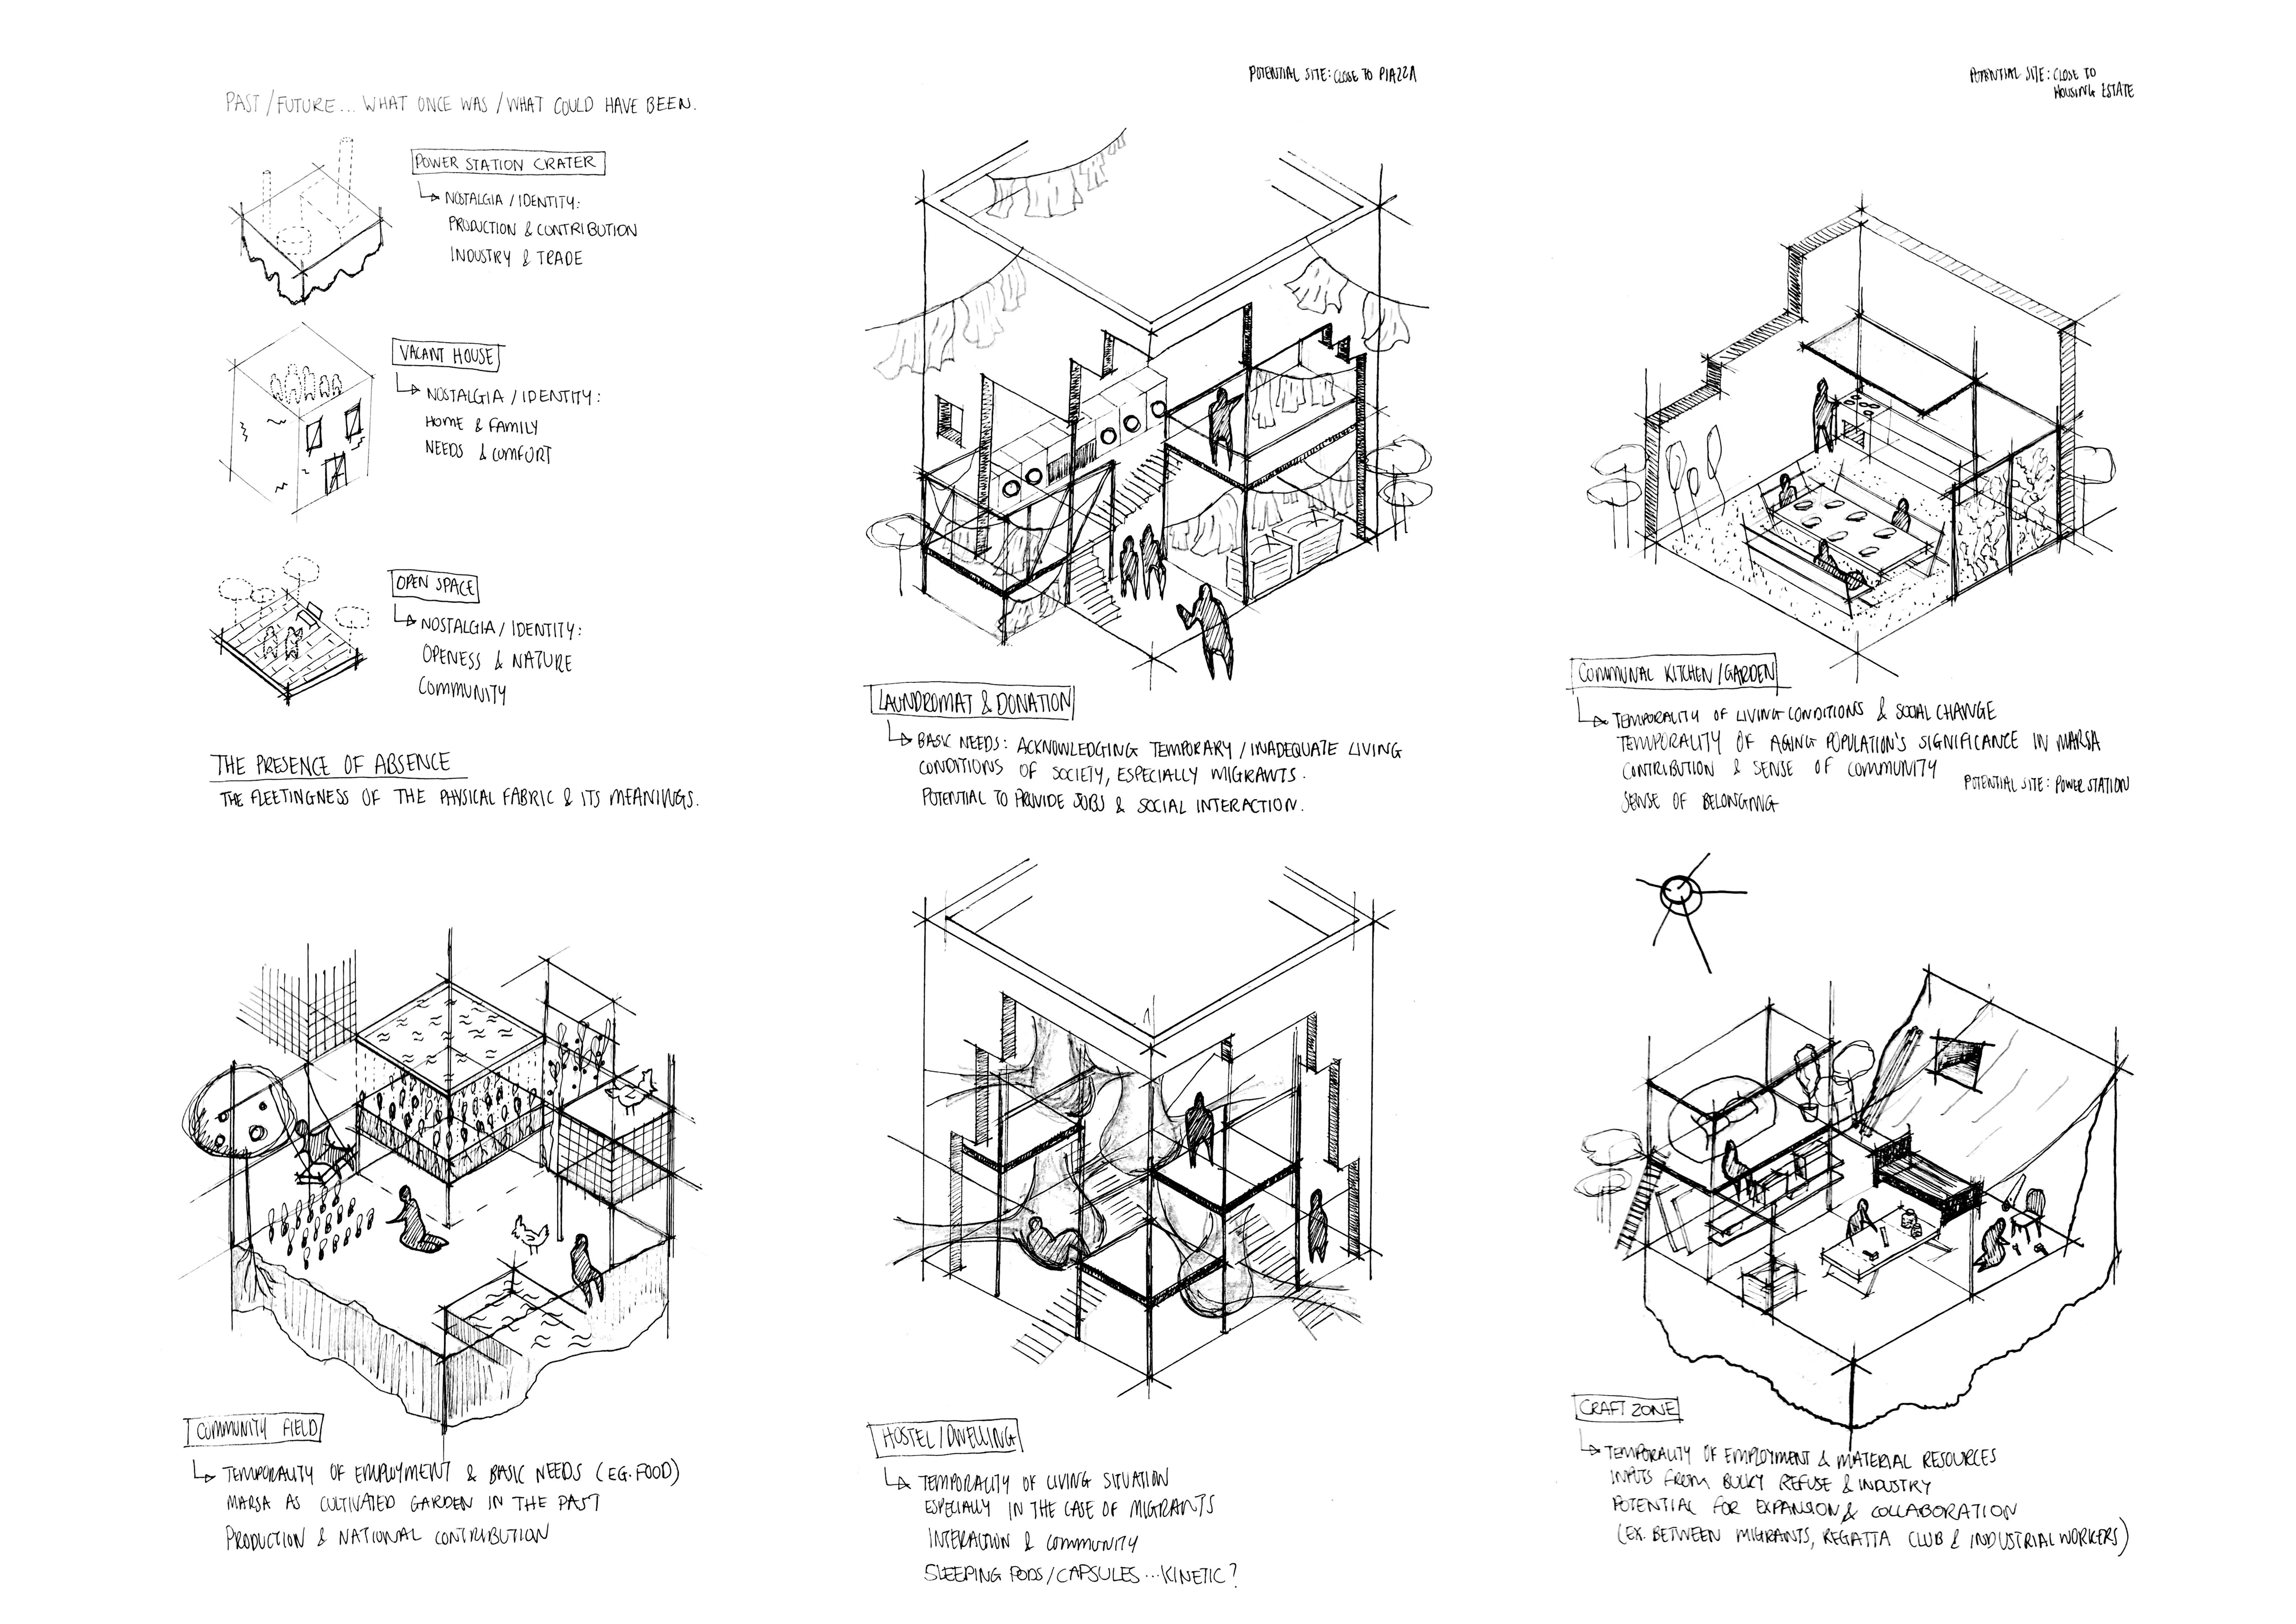 PAST/FUTURE... WHAT ONCE WAS/WHAT COULD HAVE BEEN.
POWER STATION CRATER
NOSTALGIA/IDENTITY:
PRODUCTION & CONTRIBUTION
INDUSTRY & TRADE
VACANT HOUSE
NOSTALGIA/IDENTITY:
HOME & FAMILY
NEEDS & COMFORT
OPEN SPACE
NOSTALGIA/IDENTITY:
OPENESS & NATURE
COMMUNITY
THE PRESENCE OF ABSENCE
THE FLEETINGNESS OF THE PHYSICAL FABRIC & ITS MEANINGS.
POTENTIAL SITE: CLOSE TO PIAZZA
LAUNDROMAT & DONATION
BASIC NEEDS: ACKNOWLEDGING TEMPORARY/INADEQUATE LIVING
CONDITIONS OF SOCIETY, ESPECIALLY MIGRANTS.
POTENTIAL TO PROVIDE JOBS & SOCIAL INTERACTION.
POTENTIAL SITE: CLOSE TO
HOUSING ESTATE
COMMUNAL KITCHEN/GARDEN
TEMPORALITY OF LIVING CONDITIONS & SOCIAL CHANGE
TEMPORALITY OF AGING POPULATION'S SIGNIFICANCE IN MARSA
CONTRIBUTION & SENSE OF COMMUNITY
SENSE OF BELONGING
POTENTIAL SITE: POWER STATION
COMMUNITY FIELD
TEMPORALITY OF EMPLOYMENT & BASIC NEEDS (EG. FOOD)
MARSA AS CULTIVATED GARDEN IN THE PAST
PRODUCTION & NATIONAL CONTRIBUTION
HOSTEL/DWELLING
TEMPORALITY OF LIVING SITUATION
ESPECIALLY IN THE CASE OF MIGRANTS
INTERACTION & COMMUNITY
SLEEPING PODS/CAPSULES...KINETIC?
CRAFT ZONE
TEMPORALITY OF EMPLOYMENT & MATERIAL RESOURCES
INPUTS FROM BULKY REFUSE & INDUSTRY
POTENTIAL FOR EXPANSION & COLLABORATION
(EX. BETWEEN MIGRANTS, REGATTA CLUB & INDUSTRIAL WORKERS)